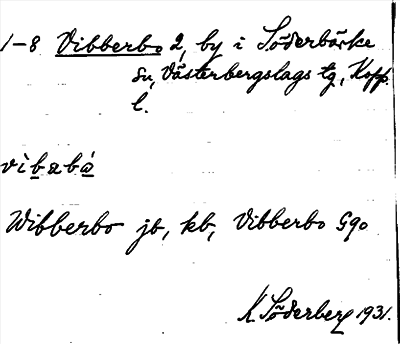 1-8 Vibberbo 2, by i Söderbärke
sn, Västerbergslags tg, Kopp.
l.
vìbabá
Wibberbo jb, kb, Vibberbo Gqo
K. Söderberg 1931.